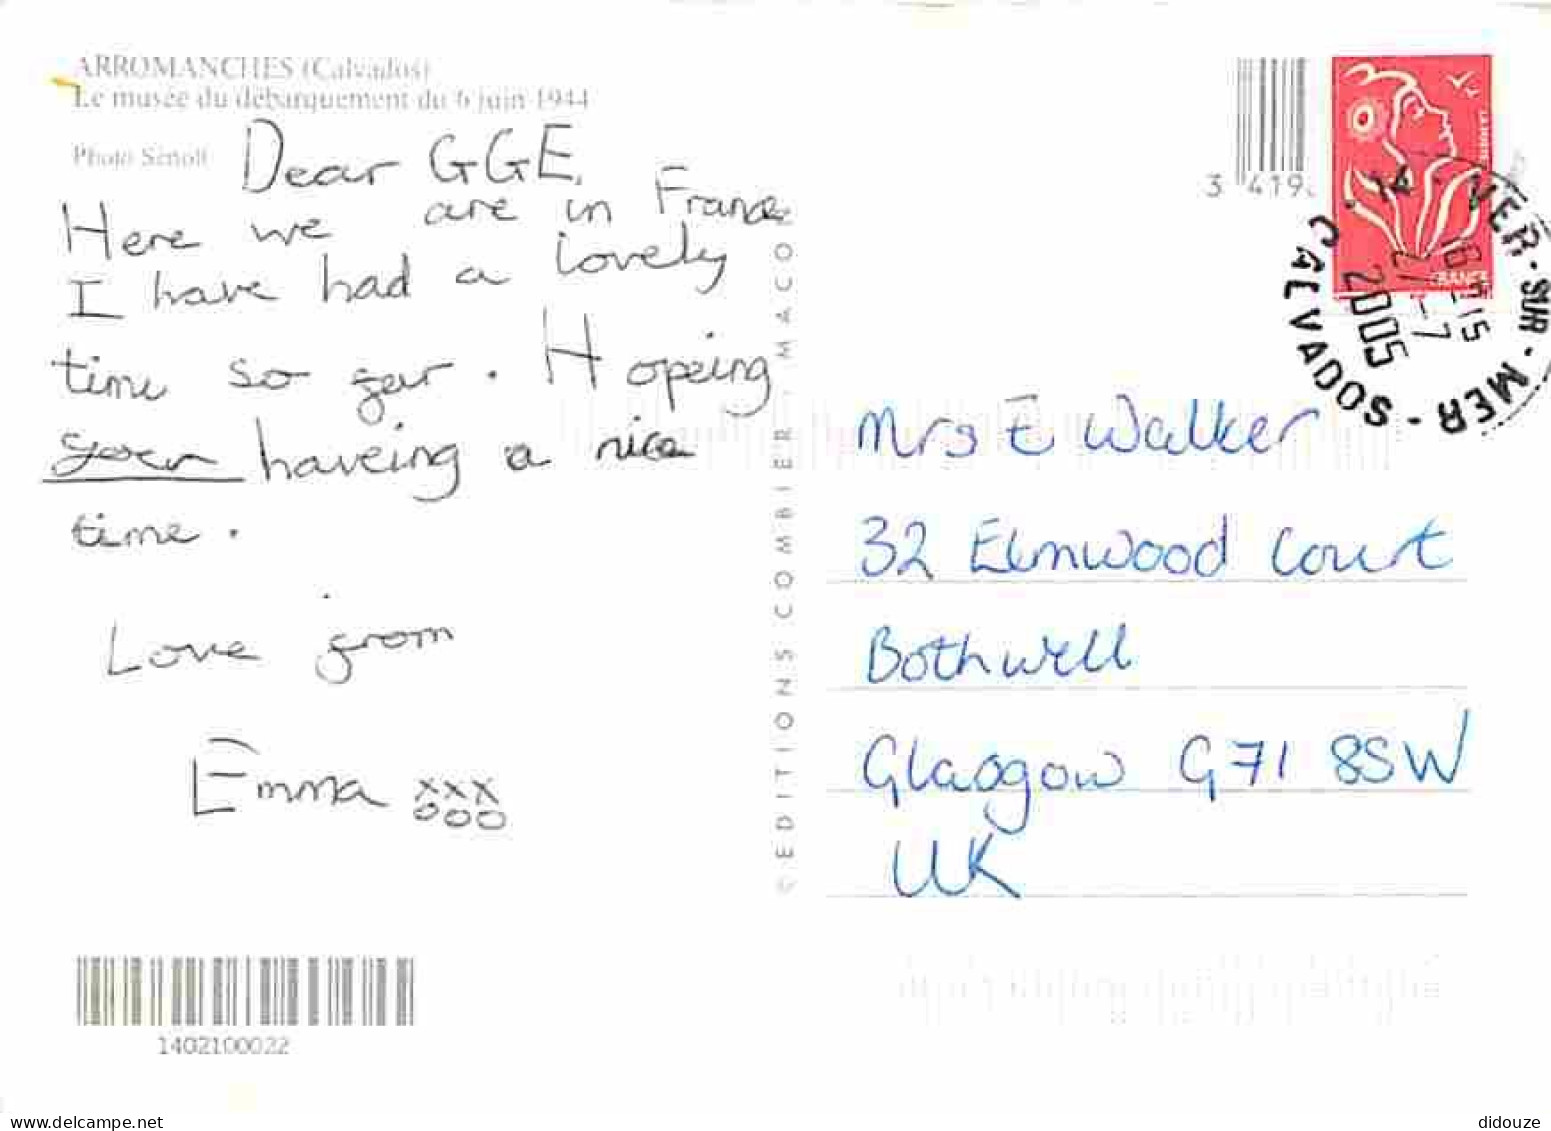 ARROMANCHES (Calvados)
Le musée du débarquement du 6 juin 1944
Photo
Dear GGE,
Here we are in France
I have had a lovely
time so far. Hopeing
your haveing a nice
time.
Love from
Emma xxx
ooo
1402100022
© EDITIONS COMBIER MACON
3 419
FRANCE
14 - MER-SUR-MER - CALVADOS
2005
Mrs E Walker
32 Elmwood Court
Bothwell
Glasgow G71 8SW
UK
didouze